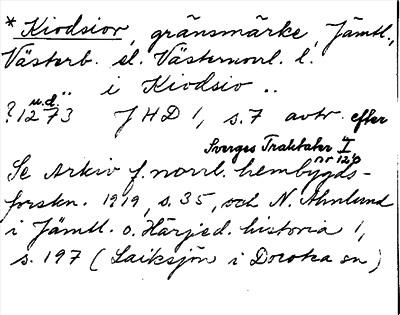 * Kiodsiov, gränsmärke, Jämtl.,
Västerb. el. Västernorrl. l.
"i Kiodsiv"
? 1273 u.d. JHD 1, s. 7 avtr. efter
Sverges Traktater I nr 126
Se Arkiv f. norrl. hembygds-
forskn. 1919, s. 35, och N. Ahnlund
i Jämtl. o. Härjed. historia 1,
s. 197 (Laiksjön i Dorotea sn)